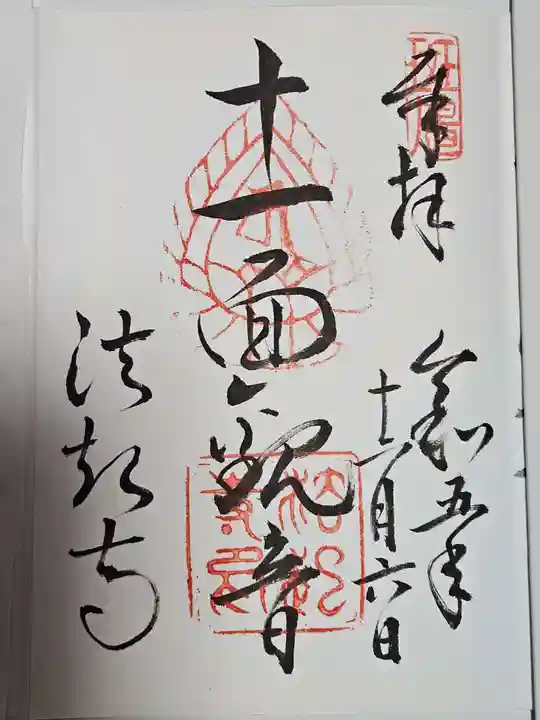 奉拝
令和五年
十一月六日
十一面観音
法起寺